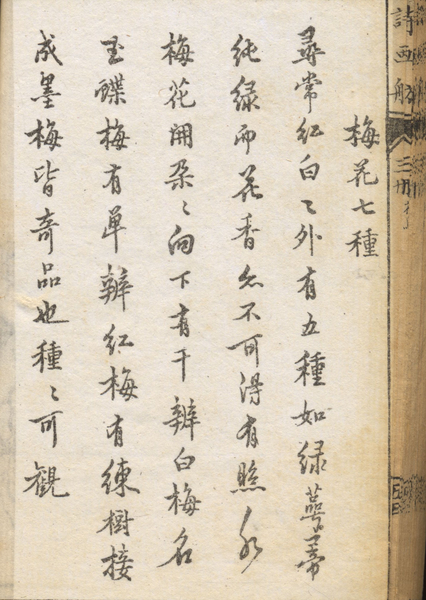 詩画舫
梅花七種
尋常紅白之外有五種如綠萼蒂
純綠而花香亦不可得有照水
梅花開朵〻向下有千瓣白梅名
玉蝶梅有单瓣紅梅有練樹接
成墨梅皆奇品也種〻可觀